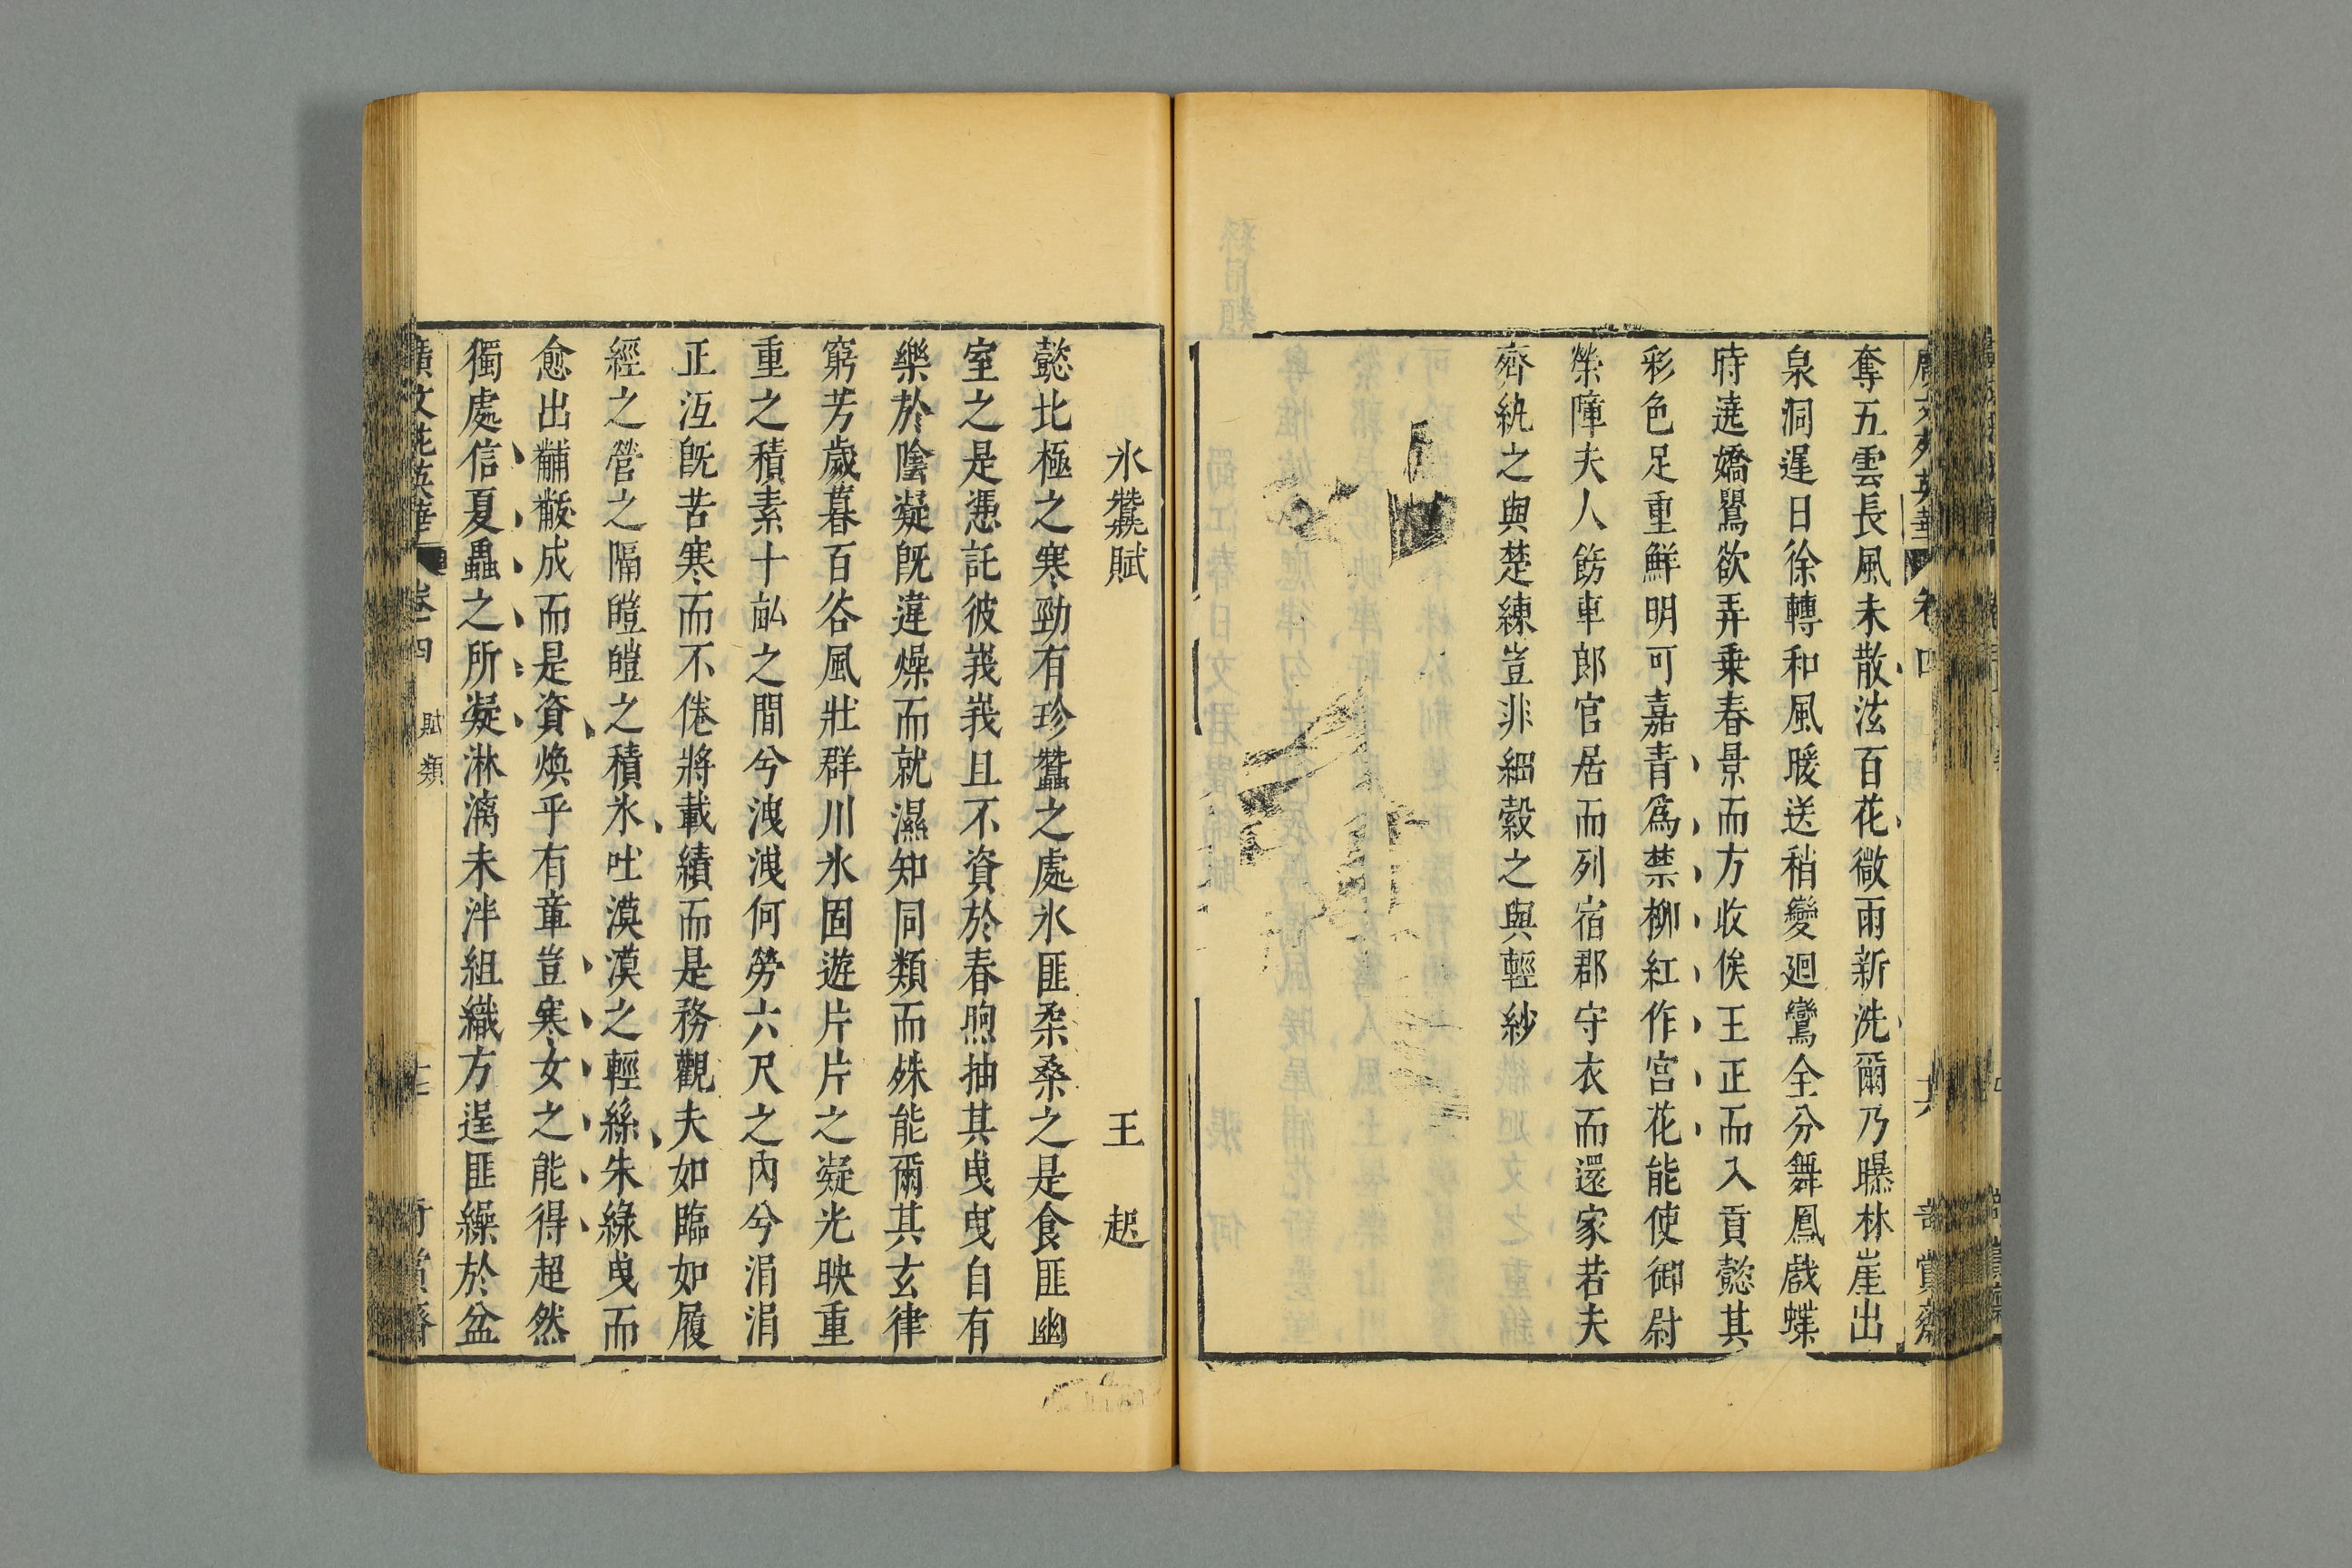 奪五雲長風未散泫百花微雨新洗爾乃曝林崖出
泉洞遲日徐轉和風暖送稍變迴鸞全分舞鳳戲蝶
時遶嬌鸎欲弄乗春景而方收俟王正而入貢懿其
彩色足重鮮明可嘉青爲禁柳紅作宮花能使御尉
榮障夫人餙車郎官居而列宿郡守衣而還家若夫
齊紈之與楚練豈非細縠之與輕紗
氷蠶賦 王起
懿北極之寒勁有珍蠶之處氷匪柔桑之是食匪幽
室之是憑託彼峩峩且不資於春煦抽其曵曵自有
樂於陰凝既違燥而就濕知同類而殊能爾其玄律
窮芳歲暮百谷風壯群川氷固遊片片之凝光映重
重之積素十畝之間兮洩洩何勞六尺之內兮涓涓
正沍既苦寒而不倦將載績而是務觀夫如臨如履
經之營之隔皚皚之積氷吐漠漠之輕絲朱綠曵而
愈出黼黻成而是資煥乎有章豈寒女之能得超然
獨處信夏蟲之所凝淋漓未泮組織方逞匪繰於盆
廣文苑英華 卷四 賦類 奇賞齋